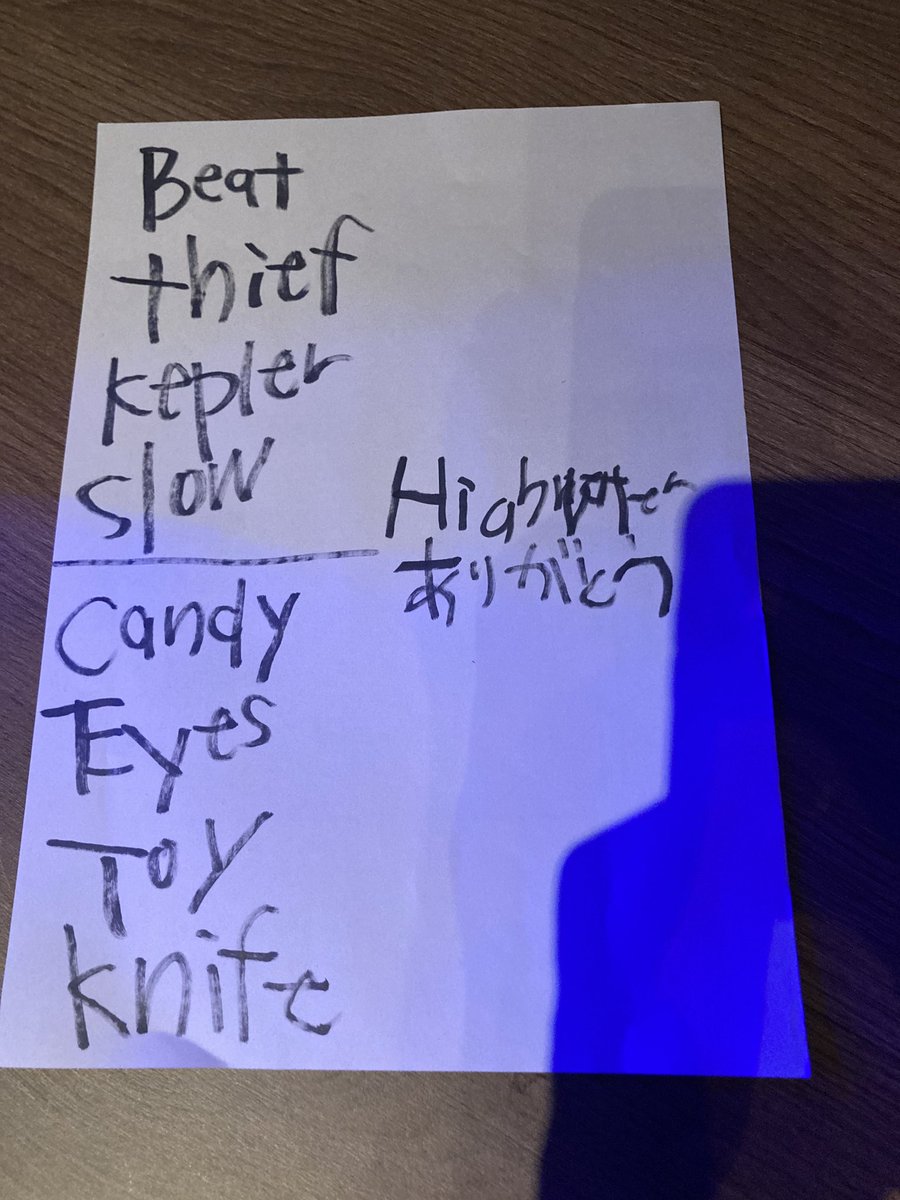 Beat
thief
kepler
slow
ありがとう
Candy
Eyes
Toy
knife